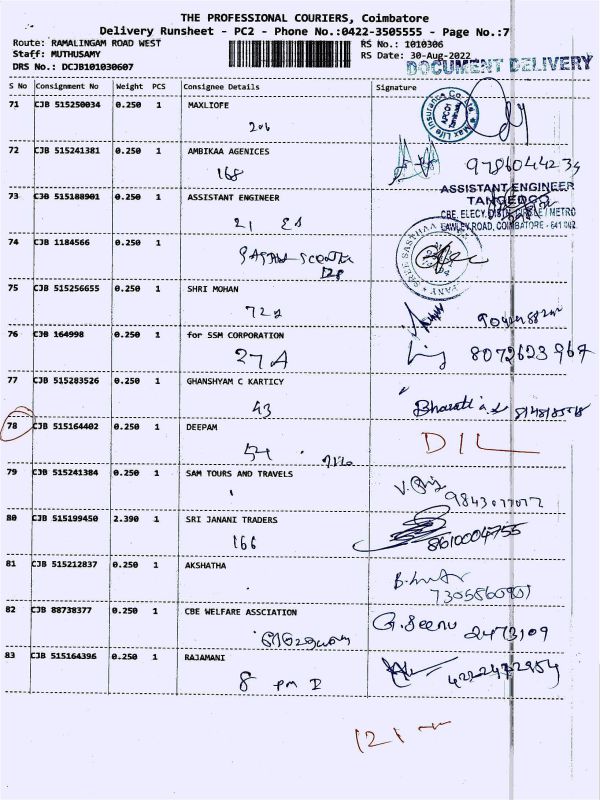 THE PROFESSIONAL COURIERS, Coimbatore
Delivery Runsheet - PC2 - Phone No.:0422-3505555 - Page No.:7
Route: RAMALINGAM ROAD WEST RS No.: 1010306
Staff: MUTHUSAMY RS Date: 30-Aug-2022
DRS No.: DCJB101030607 DOCUMENT DELIVERY
S No Consignment No Weight PCS Consignee Details Signature
71 CJB 515250034 0.250 1 MAXLIOFE
206
72 CJB 515241381 0.250 1 AMBIKAA AGENICES
168 9786044234
73 CJB 515188901 0.250 1 ASSISTANT ENGINEER ASSISTANT ENGINEER
TANGEDCO
21
CBE. ELECY. METRO
LAWLEY ROAD, COIMBATORE - 641 002.
74 CJB 1184566 0.250 1
75 CJB 515256655 0.250 1 SHRI MOHAN
72
76 CJB 164998 0.250 1 for SSM CORPORATION
27A 8072623967
77 CJB 515283526 0.250 1 GHANSHYAM C KARTICY
43 Bharati
78 CJB 515164402 0.250 1 DEEPAM
54 D/L
79 CJB 515241384 0.250 1 SAM TOURS AND TRAVELS
80 CJB 515199450 2.390 1 SRI JANANI TRADERS
166 8610004755
81 CJB 515212837 0.250 1 AKSHATHA
7305560901
82 CJB 88738377 0.250 1 CBE WELFARE ASSCIATION
G.Seenu 2473109
83 CJB 515164396 0.250 1 RAJAMANI
8 pm I 4222472954
121